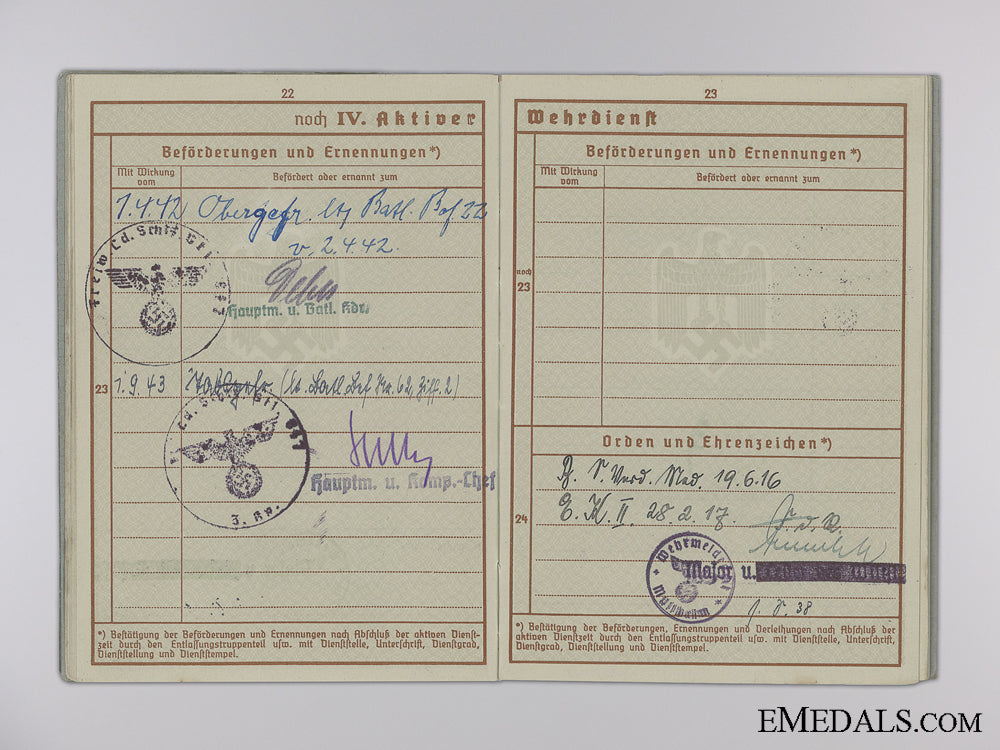 22
noch IV. Aktiver
Beförderungen und Ernennungen*)
Mit Wirkung vom
Befördert oder ernannt zum
1.4.42 Obergefr. Batl. Bef 22
v. 2.4.42.
Ld. Schtz. 
Hauptm. u. Batl. Kdr.
23
1.9.43 (Batl. Bef Nr. 62, Ziff. 2)
Hauptm. u. Komp.-Chef
3. Kp.
*) Bestätigung der Beförderungen und Ernennungen nach Abschluß der aktiven Dienst-
zeit durch den Entlassungstruppenteil usw. mit Dienststelle, Unterschrift, Dienstgrad,
Dienststellung und Dienststempel.
23
Wehrdienst
Beförderungen und Ernennungen*)
Mit Wirkung vom
Befördert oder ernannt zum
noch
23
Orden und Ehrenzeichen*)
Verd. Med. 19.6.16
24
E. K. II. 28.2.17.
Wehrmelde
Major u.
38
*) Bestätigung der Beförderungen, Ernennungen und Verleihungen nach Abschluß der
aktiven Dienstzeit durch den Entlassungstruppenteil usw. mit Dienststelle, Unterschrift,
Dienstgrad, Dienststellung und Dienststempel.
EMEDALS.COM